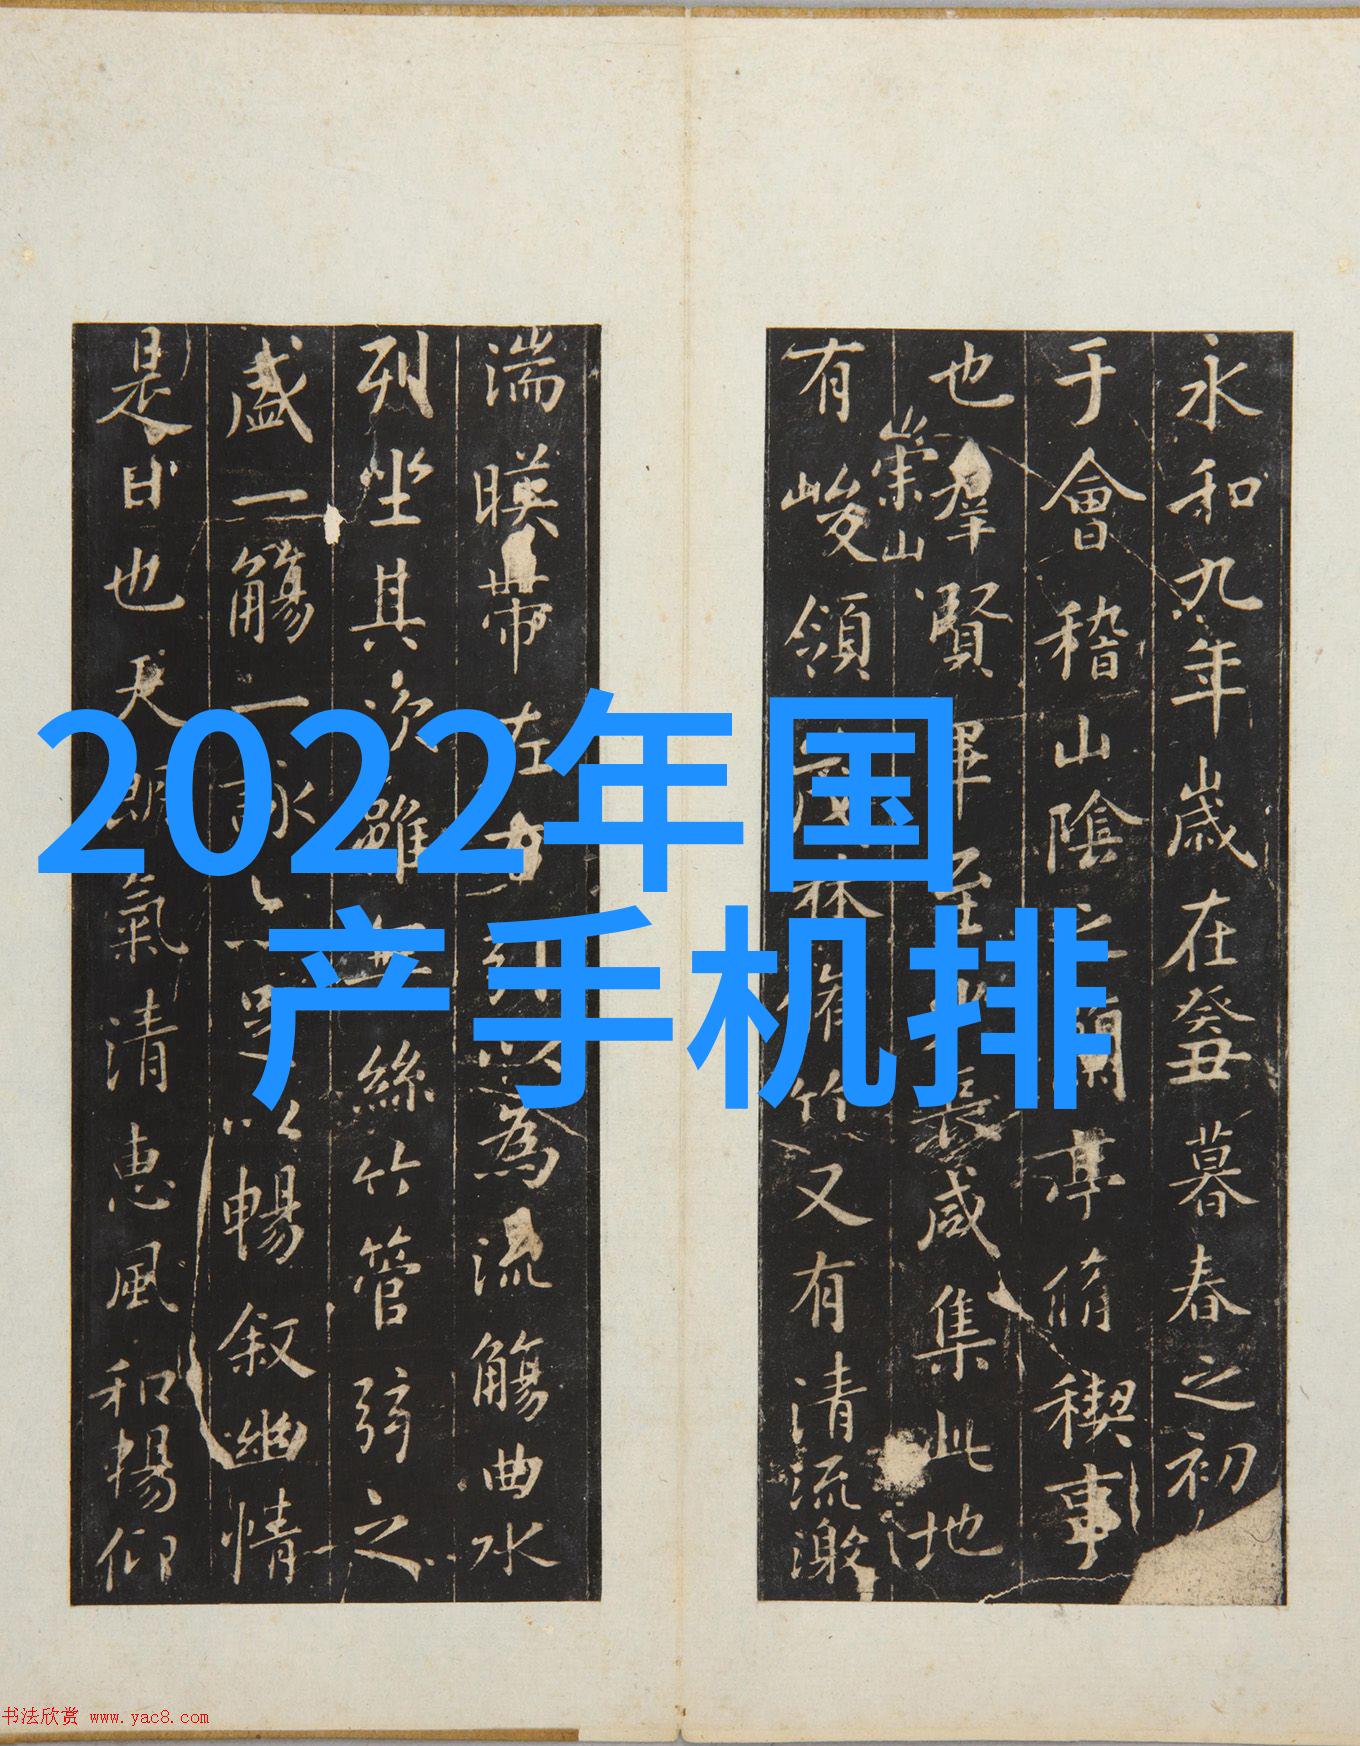 2022年国
产手机排
永和九年歲在癸丑暮春之初
于會稽山陰之蘭亭脩稧事
也群賢畢至少長咸集此地
崇山
有峻領茂林脩竹又有清流激
湍暎帶左右引以為流觴曲水
列坐其次雖無絲竹管弦之
盛一觴一詠亦足以暢叙幽情
是日也天朗氣清惠風和暢仰
书法欣赏 www.yac8.com